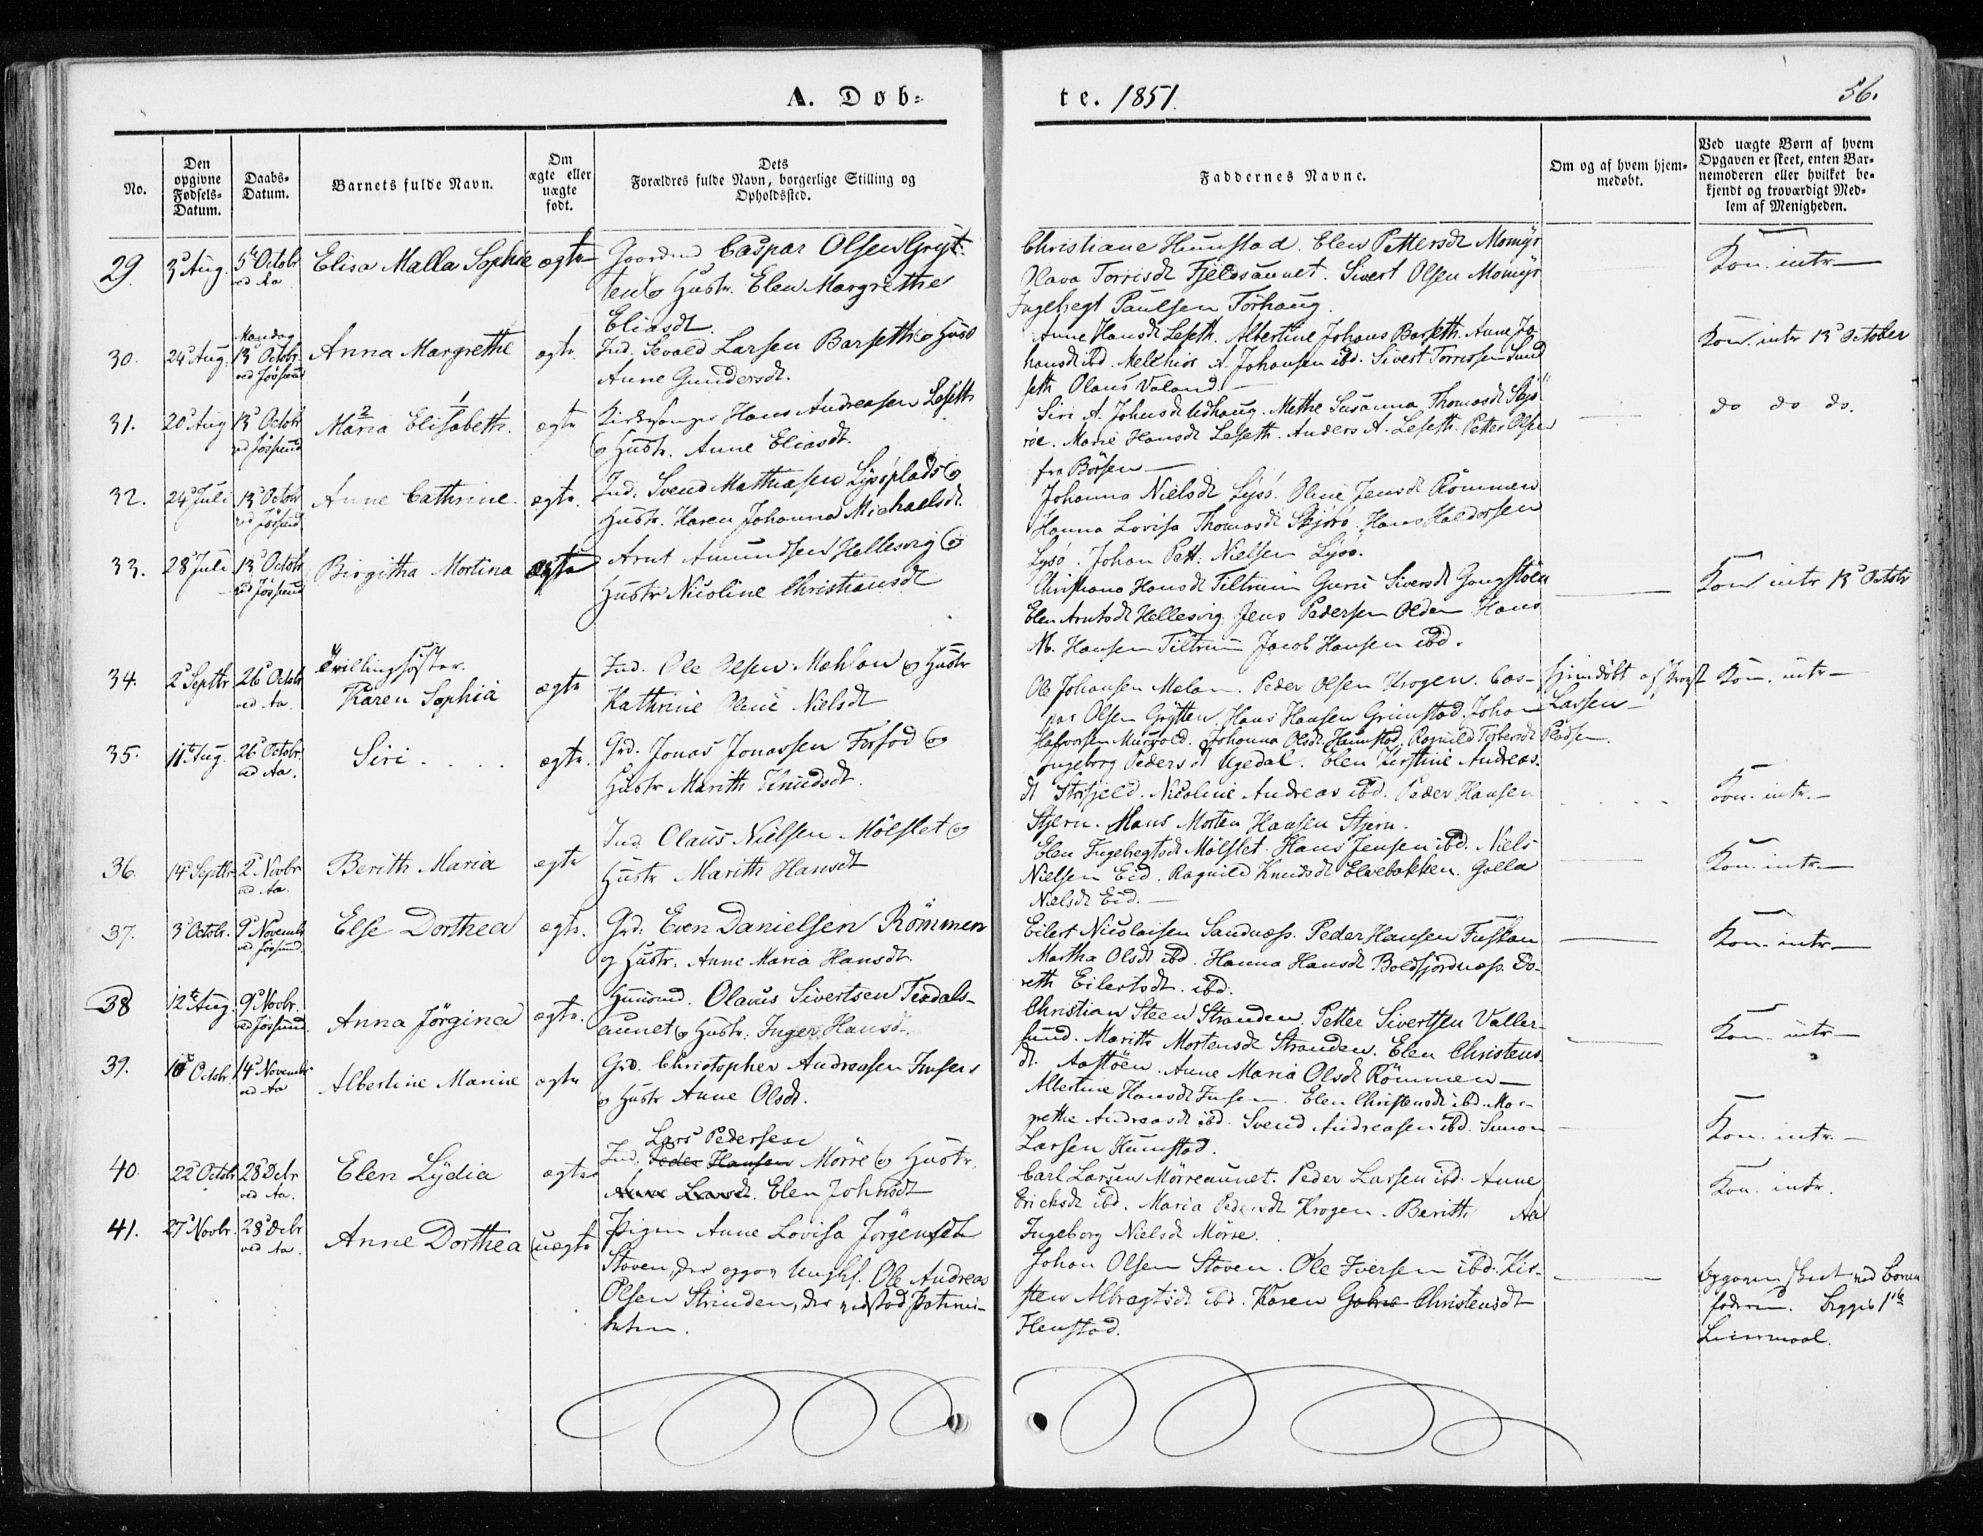 A. Døb-
te. 1851.
56.
No.
Den opgivne Fødsels-Datum.
Daabs-Datum.
Barnets fulde Navn.
Om ægte eller uægte født.
Dets Forældres fulde Navn, borgerlige Stilling og Opholdssted.
Faddernes Navne.
Om og af hvem hjem-medøbt.
Ved uægte Børn af hvem Opgaven er skeet, enten Bar-nemoderen eller hvilket be-kjendt og troværdigt Med-lem af Menigheden.
29. 3d Aug. 5te Octobr ved Aa Elisa Malla Sophie ægte
Gaardmd Caspar Olsen Gryt-
ten & Hustr. Elen Margrethe
Eliasdt.
Christiane Humstad. Elen Pettersdt Momyr
Olava Torrisdt Fjeldsaunet. Sivert Olsen Momyr
Ingebrigt Paulsen Torhaug
Kon. intr.
30. 24d Aug. Mandag 13d Octobr ved Jøssund Anna Margrethe ægte
Ind. Sevald Larsen Barseth & Hust
Anne Gundersdt.
Anne Hansdt Leseth. Albertine Johans Barseth. Anne Jo-
hansdt ibd. Melchior A. Johansen ibd. Sivert Torrissen Sund
seth Olaus Valand.
Kon. intr 13d October
31. 20d Aug 13d Octobr ved Jøssund Maria Elisabeth. ægte
2 1
Kirkesanger Hans Andreasen Leseth
& Hustr. Anne Eliasdt.
Siri A. Johnsdt Udhaug. Methe Susanna Thomasdt Skjø-
røe. Marie Hansdt Leseth. Anders A. Leseth. Petter Olsen
fra Børsen
do do do.
32. 24d Juli 13d Octobr ved Jøssund Anne Cathrine. ægte.
Ind. Svend Mathiasen Lysøplads &
Hustr. Karen Johanna Michaelsdt.
Johanna Nielsdt Lysø. Oline Jensdt Rømmen
Hanna Lovisa Thomasdt Skjørø. Hans Haldorsen
Lysø. Johan Pett. Nielsen Lysø.
33. 28d Juli 13d Octobr ved Jøssund Birgitha Martina ægte
Arnt Amundsen Hellesvig &
Hustr Nicoline Christiansdt
Christiana Hansdt Tiltrum Guru Siversdt Gangstøen
Elen Arntsdt Hellesvig. Jens Pedersen Olden Hans
M. Hansen Tiltrum Jacob Hansen ibd.
Kon intr 13d Octobr
34. 2d Septbr 26d Octobr ved Aa. Tvillingsøster. Karen Sophia ægte
Ind. Ole Olsen Mælan & Hustr
Kathrine Oline Nielsdt
Ole Johansen Melan. Peder Olsen Krogen. Cas-
par Olsen Grytten. Hans Hansen Grimstad. Johan
Halvorsen Murvold. Johanna Olsdt Humstad, Ragnild Torbersdt Pladsen.
hjemdøbt af Provst
Lassen
Kon. intr.
35. 11te Aug. 26d Octobr. ved Aa. Siri ægte.
Grd. Jonas Jonassen Forfod &
Hustr Marith Knudsdt.
Ingeborg Pedersdt Ugedal. Elen Kirstine Andreas-
dt Strifjeld. Nicoline Andreas ibd. Peder Hansen
Stjern. Hans Morten Hansen Stjern.
Kon. intr.
36. 14d Septbr 2d Novbr ved Aa. Berith Maria ægte
Ind. Olaus Nielsen Mølslet &
Hustr Marith Hansdt
Elen Ingebregtsdt Mølslet. Hans Jensen ibd. Niels
Nielsen Eid. Ragnild Knudsdt Elvebakken. Golla
Nielsdt Eid.
Kon. intr.
37. 3d Octobr. 9d Novembr ved Jøssund. Else Dorthea ægte.
Grd: Even Danielsen Rømmen
og Hustr. Anne Maria Hansdt
Eilert Nicolaisen Sandnæss. Peder Hansen Fuskan
Martha Olsdt ibd. Hanna Hansdt Boldfjordnæss. Do-
reth Eilertsdt. ibd.
Kon. intr.
38 12te Aug. 9d Novbr. ved Jøssund. Anna Jørgina ægte.
Huusmd. Olaus Sivertsen Teadals-
aunet & Hustr. Inger Hansdt.
Christian Steen Stranden. Petter Sivertsen Valler-
sund. Marith Mortensdt Stranden. Elen Christens-
dt. Aastøen. Anne Maria Olsdt Rømmen
Kon. intr
39. 10d Octobr 14d Novembr ved Aa Albertine Marine ægte
Grd. Christopher Andreasen Imsen
& Hustr Anne Olsdt.
Albertine Hansdt Imsen. Elen Christensdt ibd. Mar-
grethe Andreasdt ibd. Svend Andreasen ibd. Simon
Larsen Humstad.
Kon. intr.
40. 22d Octobr 28d Debr ved Aa. Elen Lydia ægte
Lars Pedersen
Ind. Peder Hansen Mørre & Hustr.
Anne Larsdt. Elen Johnsdt
Carl Larsen Mørreaunet. Peder Larsen ibd. Anne
Ericksdt ibd. Maria Pedersdt Krogen. Berith Aa
Ingeborg Nielsdt Mørre.
Kon. intr.
41. 27d Novbr. 28d Debr ved Aa. Anne Dorthea uægte
Pigen Anne Lovisa Jørgensdt
Stoven, der opgav Ungkf. Ole Andreas
Olsen Strinden, der vedstod Paterni-
teten.
Johan Olsen Stoven. Ole Iversen ibd. Kir-
sten Albregtsdt ibd. Karen Christensdt
Humstad.
Opgaven skeet ved Barne
faderen. Begges 1ste
Leiermaal.